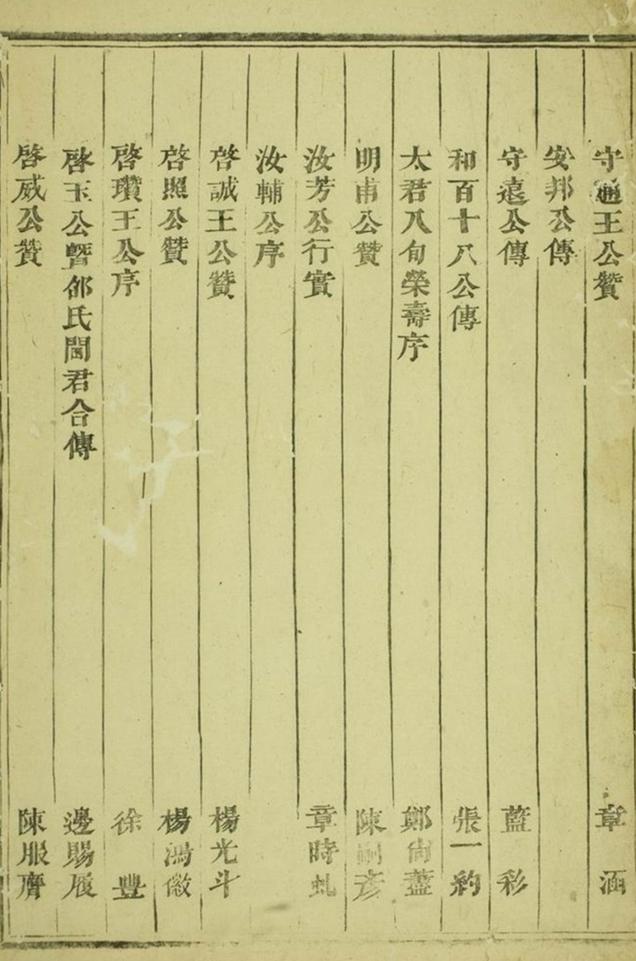 守通王公贊 章涵
安邦公傳
守遠公傳 藍彩
和百十八公傳 張一
太君八旬榮壽序 鄭尚藎
明甫公贊 陳彥
汝芳公行實 章時虬
汝輔公序
啓誠王公贊 楊光斗
啓照公贊 楊鴻徽
啓瓚王公序 徐豐
啓玉公暨邵氏閫君合傳 邊賜
啓威公贊 陳服膺